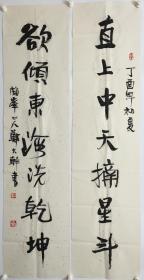 丁酉年初夏
直上中天摘星斗
欲倾東海洗乾坤